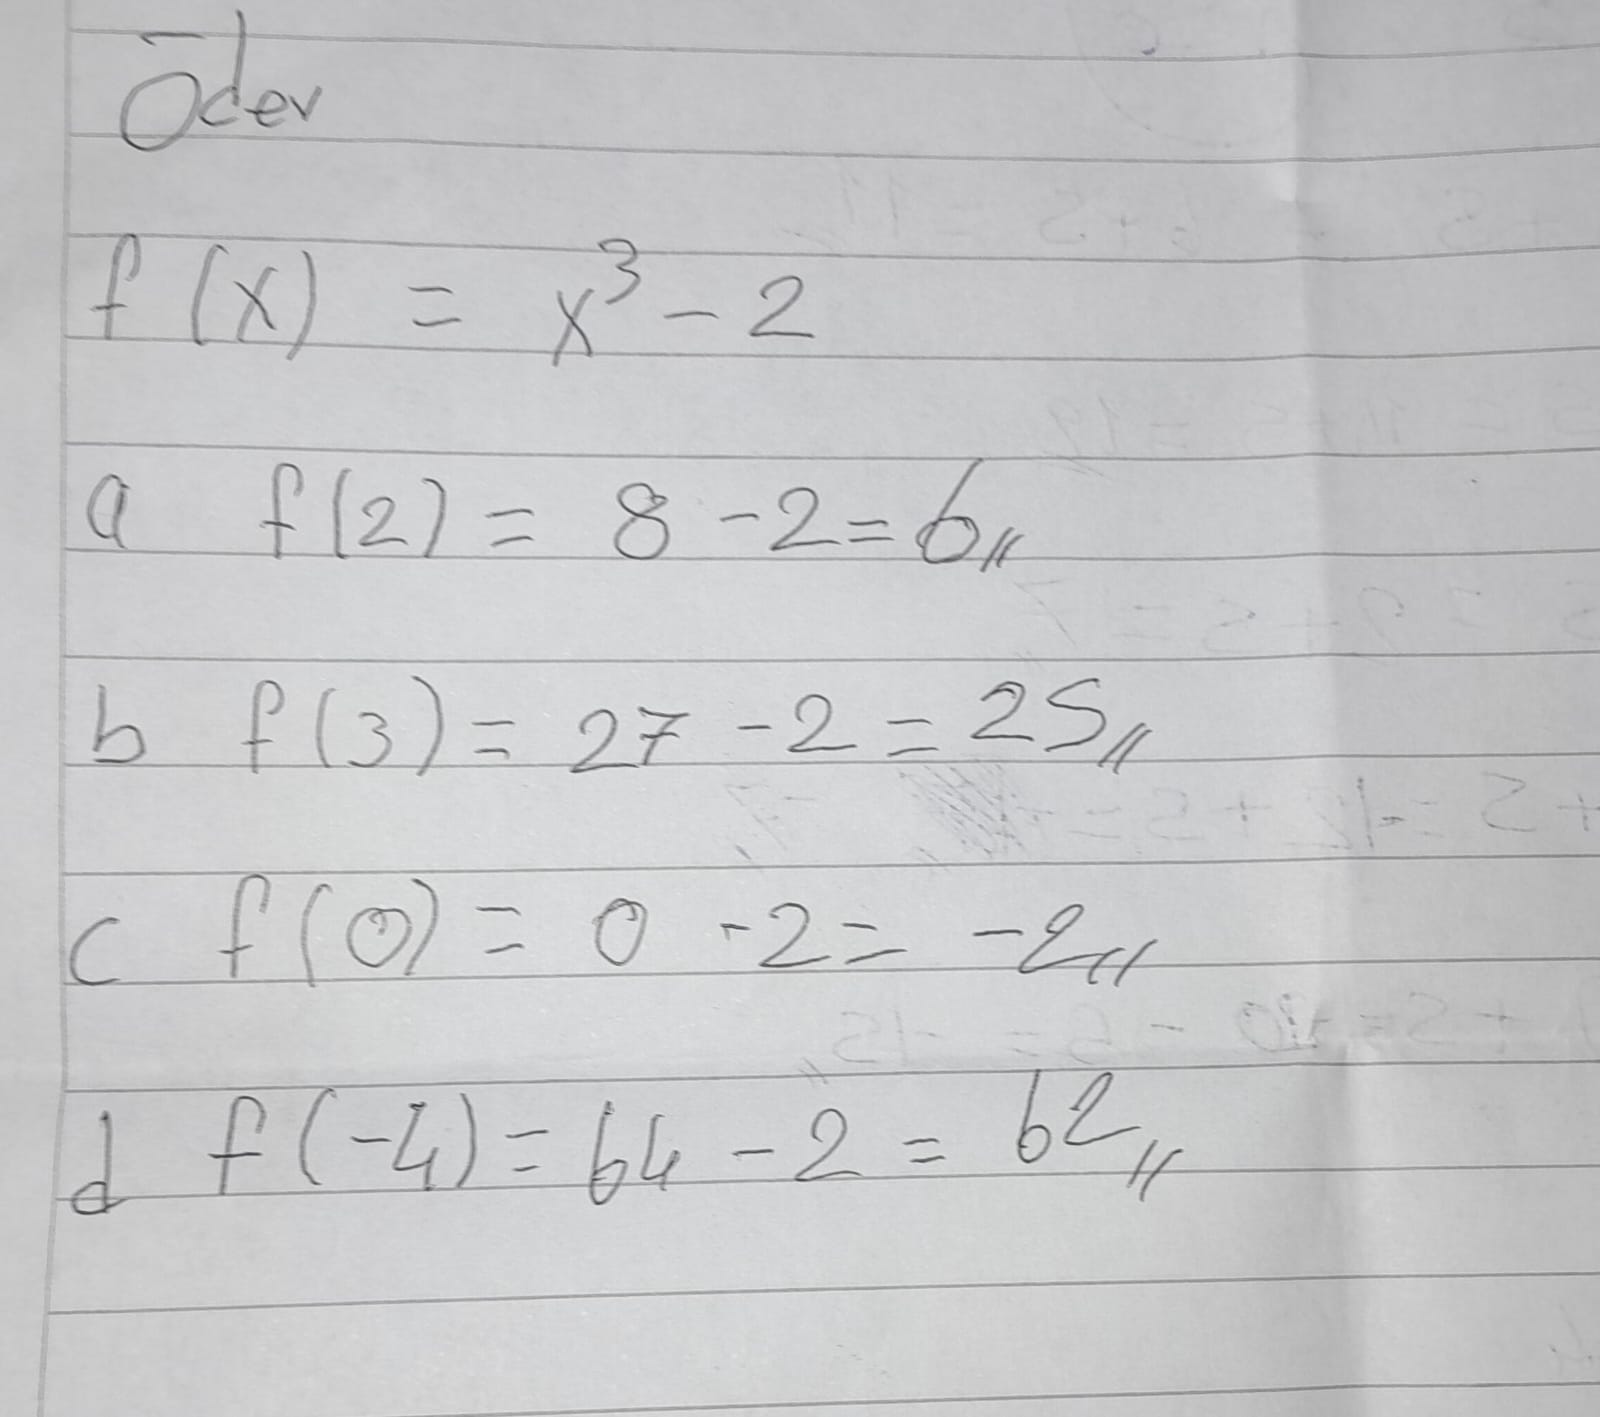 Ödev
f(x) = x³ - 2
a f(2) = 8 - 2 = 6,,
b f(3) = 27 - 2 = 25,,
c f(0) = 0 - 2 = -2,,
d f(-4) = 64 - 2 = 62,,